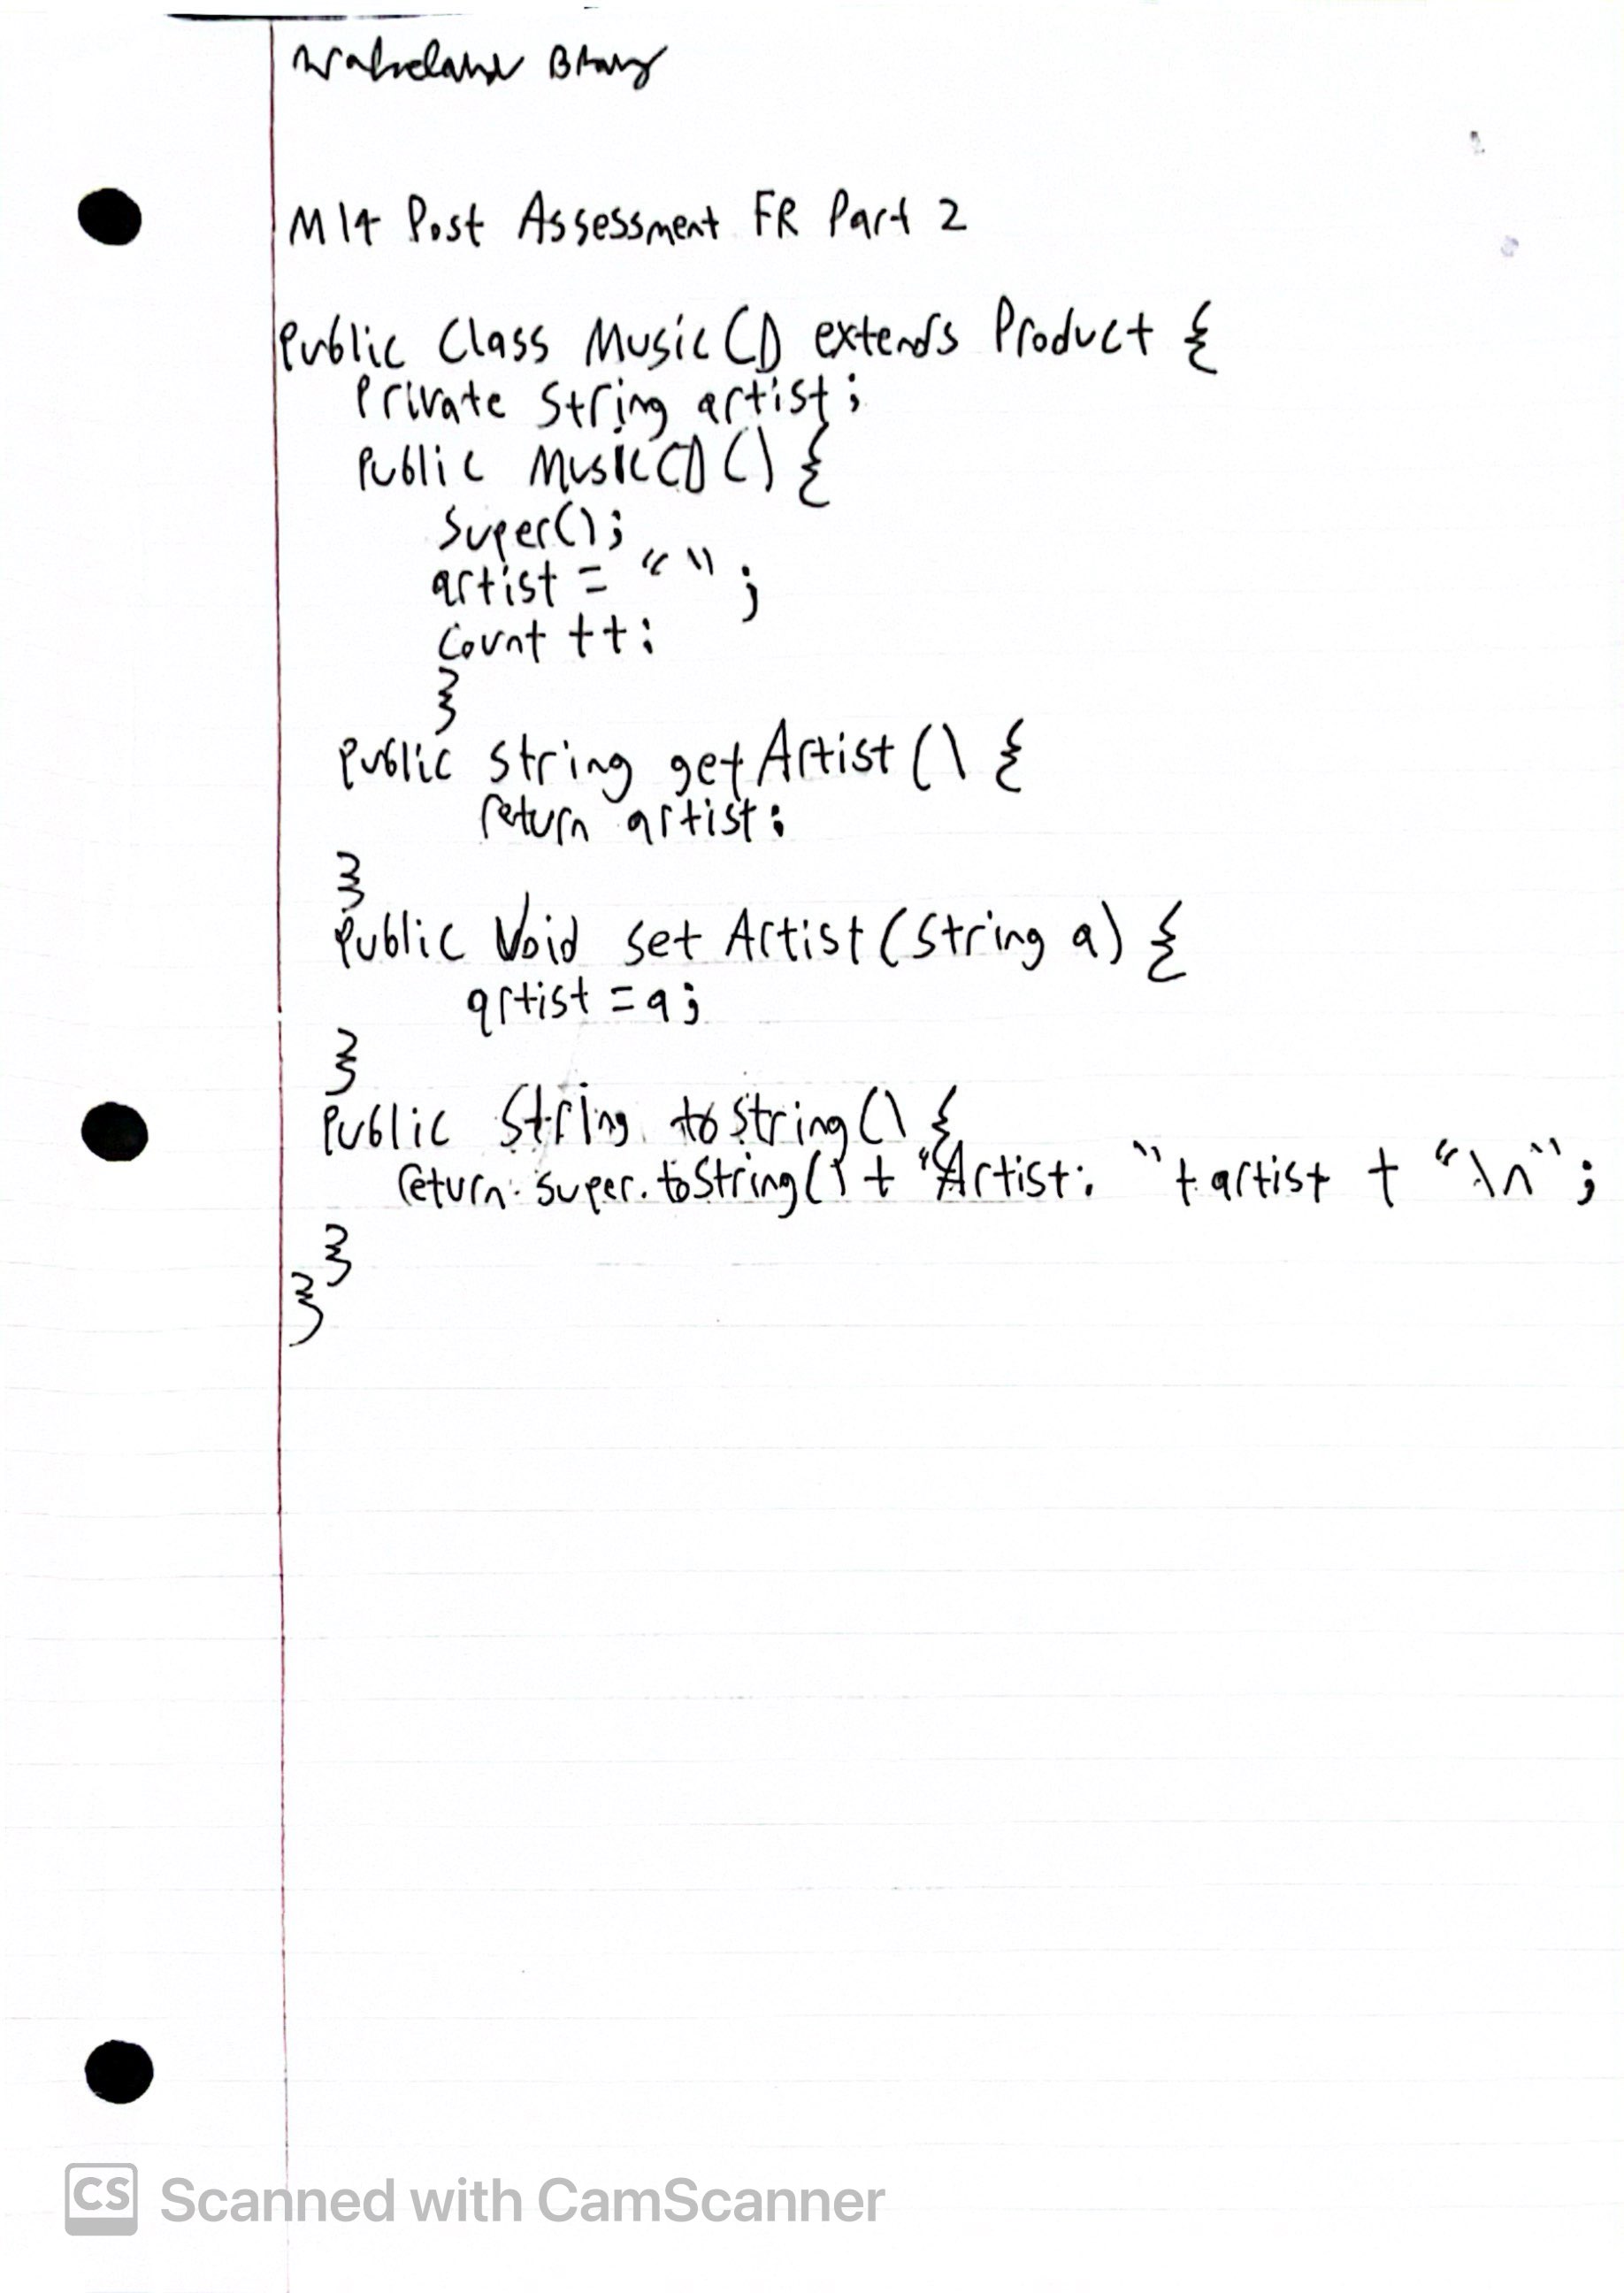 M14 Post Assessment FR Part 2
Public Class MusicCD extends Product {
Private String artist;
Public MusicCD() {
Super();
artist = "";
Count ++;
}
Public String getArtist() {
return artist;
}
Public Void setArtist(String a) {
artist = a;
}
Public String toString() {
return super.toString() + "Artist: " + artist + "\n";
}
}
CS Scanned with CamScanner